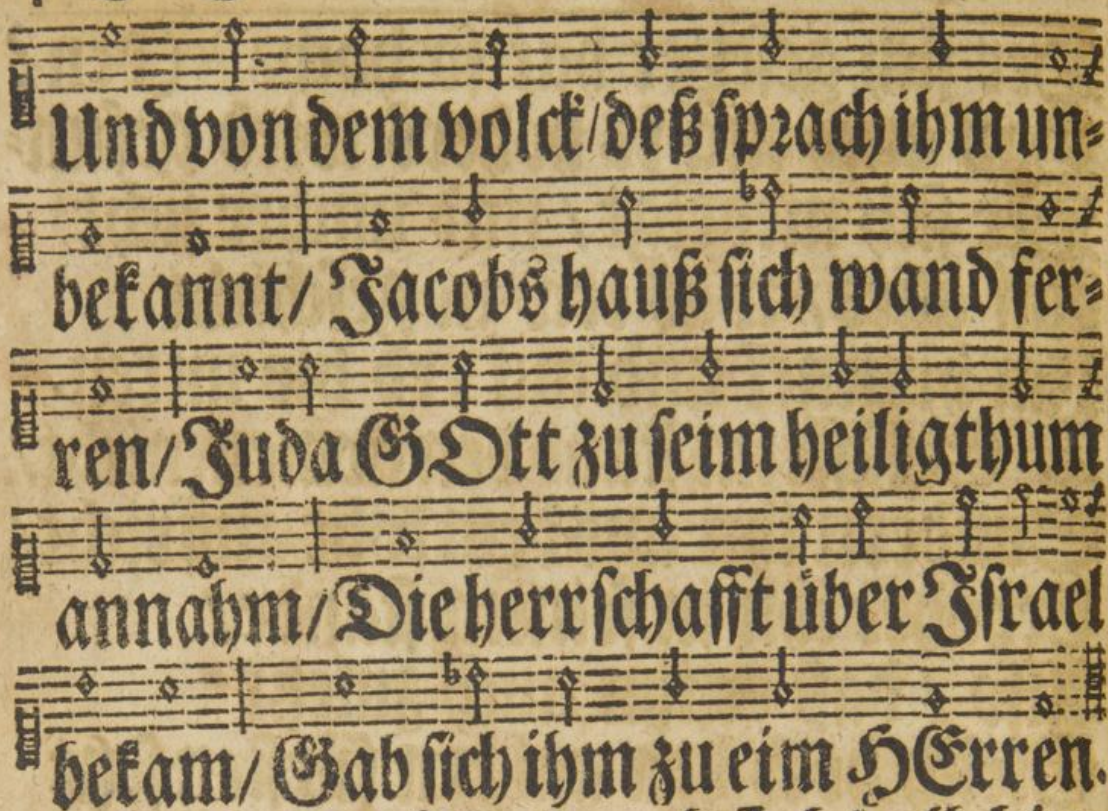 Und von dem volck/deß ſprach ihm un⸗
bekannt/ Jacobs hauß ſich wand fer⸗
ren/Juda GOtt zu ſeim heiligthum
annahm/ Die herrſchafft über Iſrael
bekam/ Gab ſich ihm zu eim HErren.